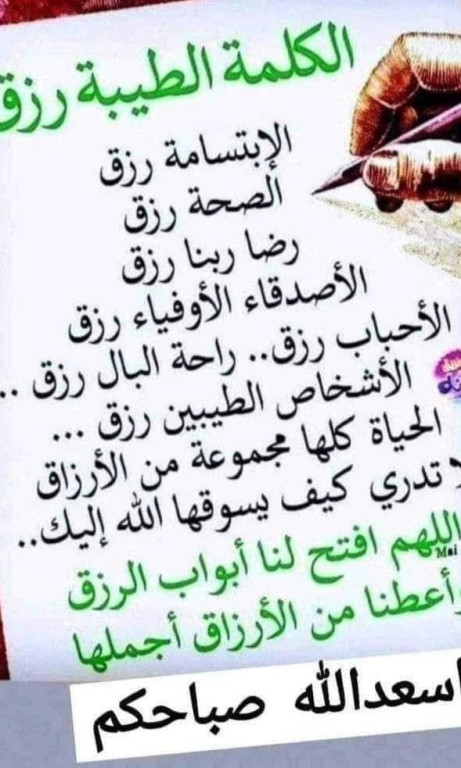 الكلمة الطيبة رزق
الإبتسامة رزق
الصحة رزق
رضا ربنا رزق
الأصدقاء الأوفياء رزق
الأحباب رزق.. راحة البال رزق ..
الأشخاص الطيبين رزق ...
الحياة كلها مجموعة من الأرزاق
لا تدري كيف يسوقها الله إليك..
اللهم افتح لنا أبواب الرزق
Mai
وأعطنا من الأرزاق أجملها
اسعدالله صباحكم